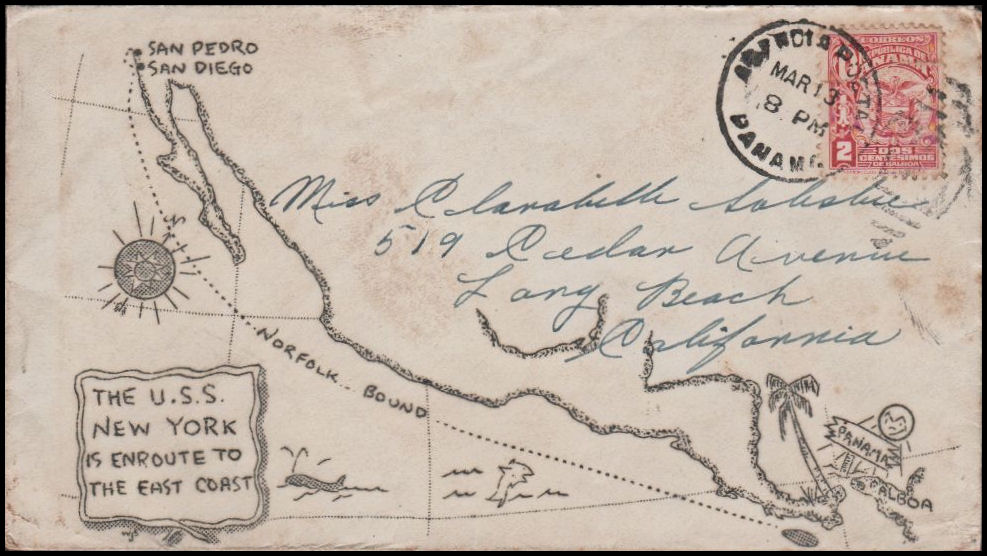 SAN PEDRO
SAN DIEGO
MAR 13
8 PM
PANAMA
CORREOS
REPUBLICA DE
PANAMA
2
DOS
CENTESIMOS
DE BALBOA
Miss
519 Cedar Avenue
Long Beach
California
NORFOLK BOUND
THE U.S.S.
NEW YORK
IS ENROUTE TO
THE EAST COAST
PANAMA
BALBOA